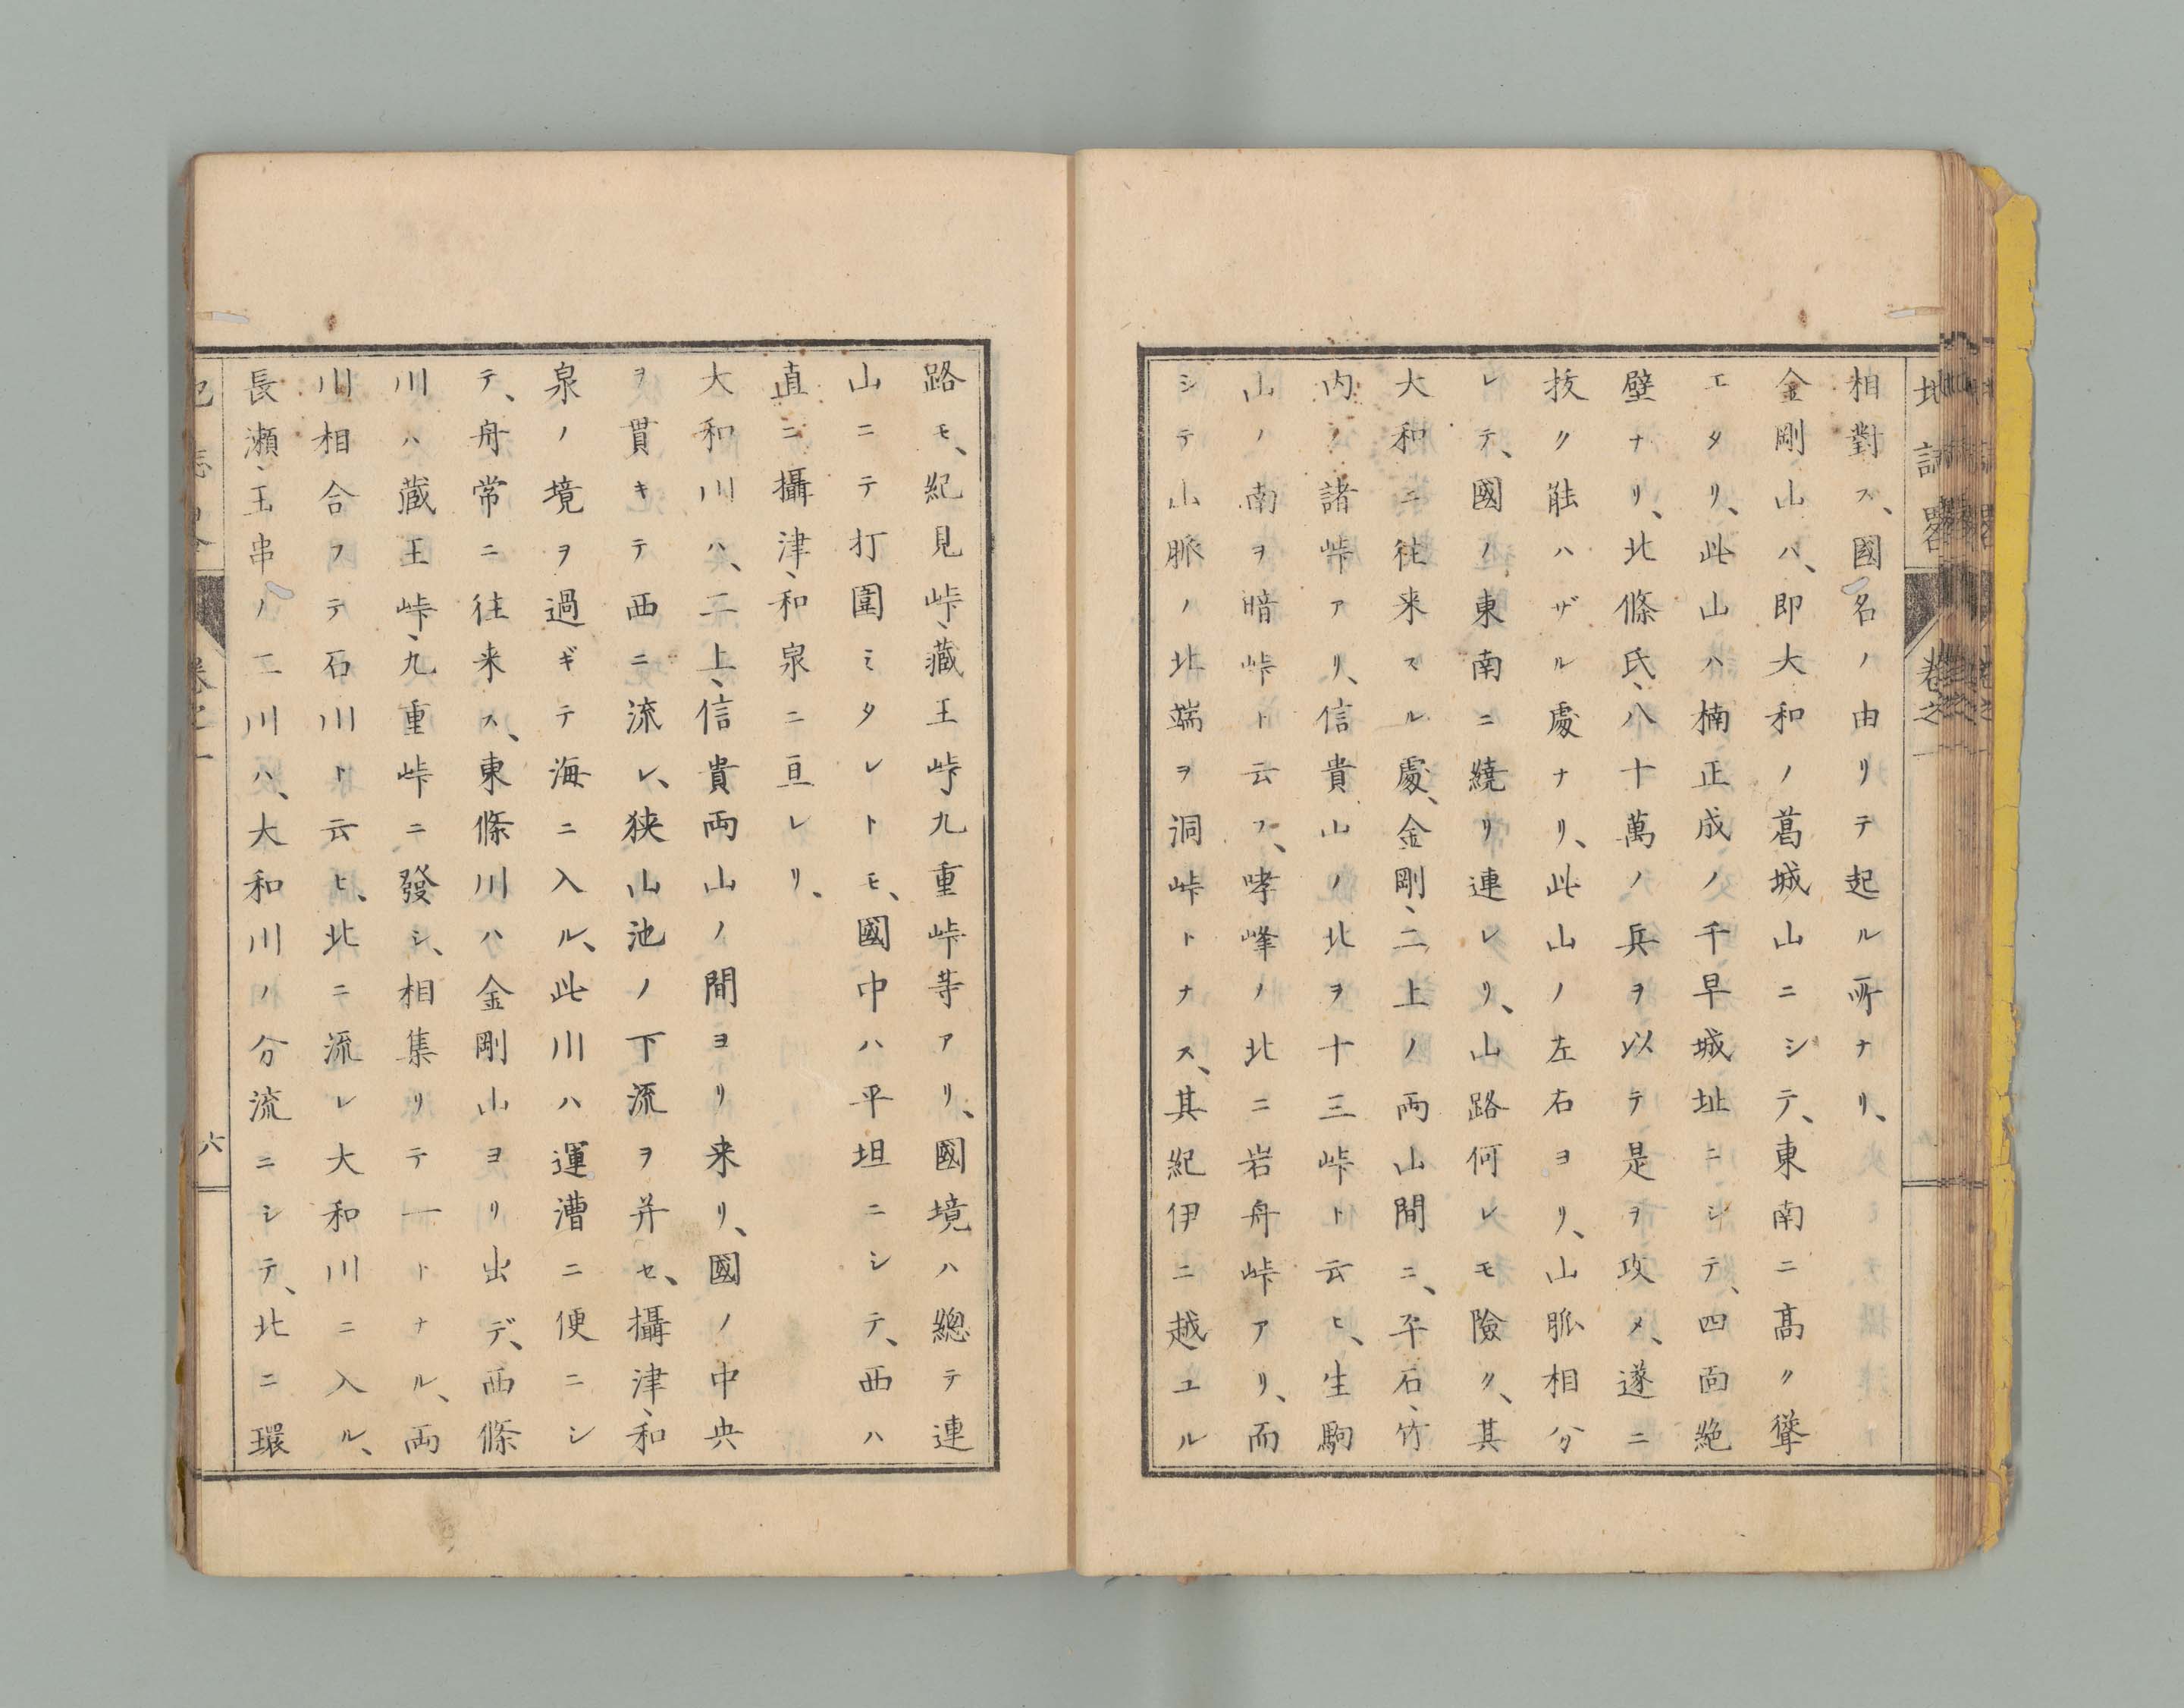 地誌略 卷之一
相對ス、國名ノ由リテ起ル所ナリ、
金剛山ハ、即大和ノ葛城山ニシテ、東南ニ高ク聳
エタリ、此山ハ楠正成ノ千早城址ニシテ、四面絶
壁ナリ、北條氏、八十萬ノ兵ヲ以テ是ヲ攻メ、遂ニ
拔ク能ハザル處ナリ、此山ノ左右ヨリ、山脈相分
レテ、國ノ東南ニ繞リ連レリ、山路何レモ險ク、其
大和ニ往来スル處、金剛、二上ノ両山間ニ、平石、竹
内ノ諸峠アリ、信貴山ノ北ヲ十三峠ト云ヒ、生駒
山ノ南ヲ暗峠ト云フ、哮峰ノ北ニ岩舟峠アリ、而
シテ山脈ノ北端ヲ洞峠トナス、其紀伊ニ越ユル
路モ、紀見峠、藏王峠九重峠等アリ、國境ハ總テ連
山ニテ打圍ミタレトモ、國中ハ平坦ニシテ、西ハ
直ニ攝津、和泉ニ亘レリ、
大和川ハ、二上、信貴両山ノ間ヨリ来リ、國ノ中央
ヲ貫キテ西ニ流レ、狭山池ノ下流ヲ并セ、攝津、和
泉ノ境ヲ過ギテ海ニ入ル、此川ハ運漕ニ便ニシ
テ、舟常ニ往来ス、東條川ハ金剛山ヨリ出デ、西條
川ハ藏王峠、九重峠ニ發シ、相集リテ一トナル、両
川相合フテ石川ト云ヒ、北ニ流レ大和川ニ入ル、
長瀬、玉串ノ二川ハ、大和川ノ分流ニシテ、北ニ環
六